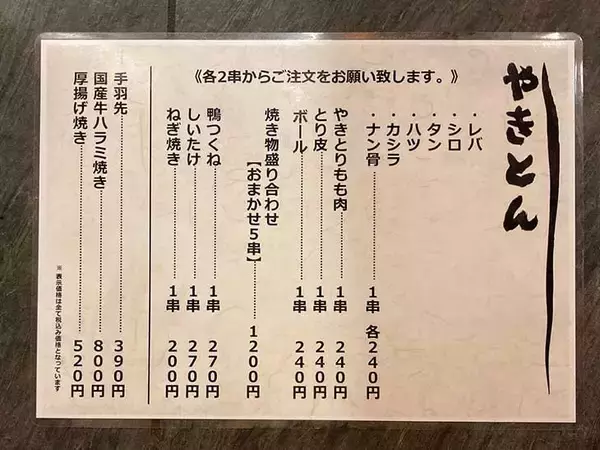 やきとん
《各2串からご注文をお願い致します。》
・レバ
・シロ
・タン
・ハツ
・カシラ
・ナン骨……1串 各240円
やきとりもも肉……1串 240円
とり皮……1串 240円
ボール……1串 240円
焼き物盛り合わせ
【おまかせ5串】……1200円
鴨つくね……1串 270円
しいたけ……1串 270円
ねぎ焼き……1串 200円
手羽先……390円
国産牛ハラミ焼き……800円
厚揚げ焼き……520円
※表示価格は全て税込み価格となっています